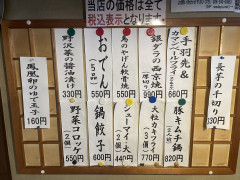 当店の価格は全て
税込表示となります。
手羽先&
カマンベールフライ
660円
銀ダラの西京焼
990円
鳥のやげん軟骨焼
550円
おでん
(5品)
550円
野沢菜の醤油漬け
330円
鳳凰卵のゆで玉子
160円
長芋の千切り
330円
豚キムチ鍋
820円
大粒カキフライ
770円
シューマイ大
(2個)
440円
鍋餃子
600円
野菜コロッケ
(2個)
550円